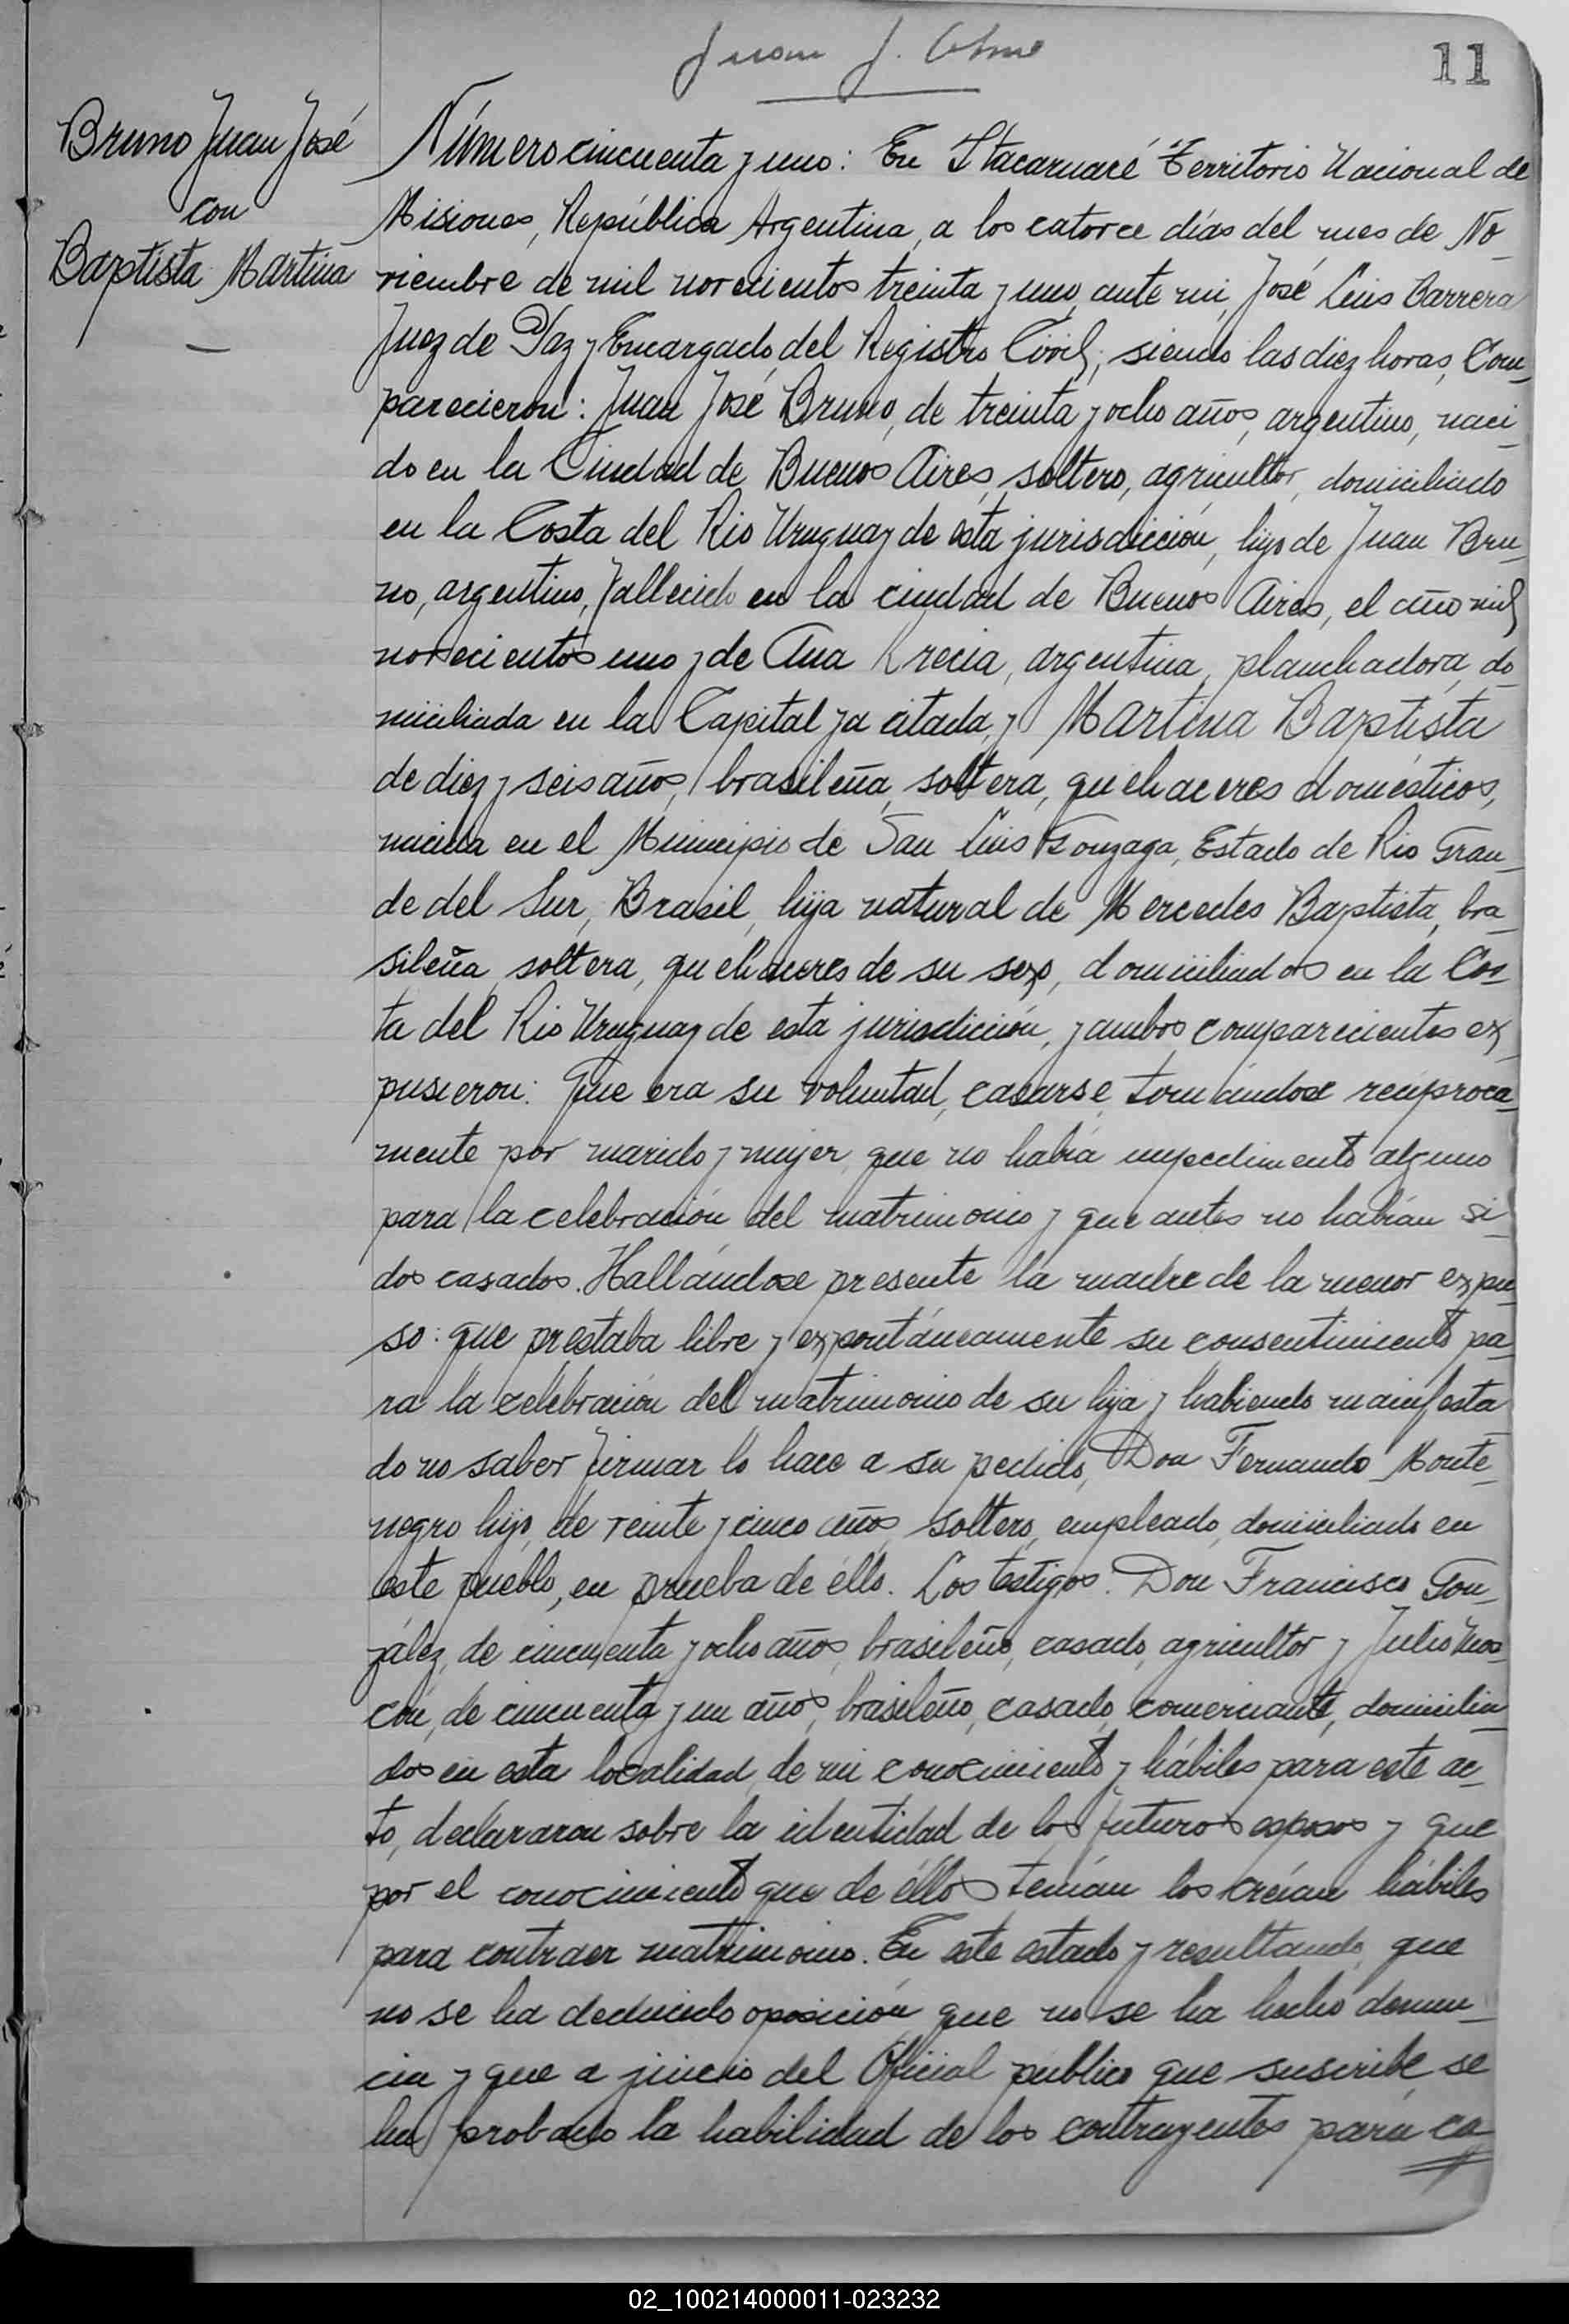 Juan J.
11
Bruno Juan José
con
Baptista Martina
Número cincuenta y uno: En Itacaruaré Territorio Nacional de
Misiones, República Argentina, a los catorce días del mes de No-
viembre de mil novecientos treinta y uno, ante mi, José Luis Barrera
Juez de Paz y Encargado del Registro Civil, siendo las diez horas, Com-
parecieron: Juan José Bruno, de treinta y ocho años, argentino, naci-
do en la Ciudad de Buenos Aires, soltero, agricultor, domiciliado
en la Costa del Rio Uruguay de esta jurisdicción, hijo de Juan Bru-
no, argentino, fallecido en la ciudad de Buenos Aires, el año mil
novecientos uno y de Ana argentina, planchadora, do-
miciliada en la Capital ya citada, y Martina Baptista
de diez y seis años, brasileña, soltera, quehaceres domésticos,
nacida en el Municipio de San Luis Gonzaga, Estado de Rio Gran-
de del Sur, Brasil, hija natural de Mercedes Baptista, bra-
sileña, soltera, quehaceres de su sexo, domiciliados en la Cos-
ta del Rio Uruguay de esta jurisdicción, y ambos comparecientes ex-
pusieron: Que era su voluntad, casarse, tomándose reciproca-
mente por marido y mujer, que no había impedimento alguno
para la celebración del matrimonio y que antes no habían si-
dos casados. Hallándose presente la madre de la menor expu-
so: que prestaba libre y expontáneamente su consentimiento pa-
ra la celebración del matrimonio de su hija y habiendo manifesta-
do no saber firmar lo hace a su pedido, Don Fernando Monte-
negro hijo, de veinte y cinco años, soltero, empleado, domiciliado en
este pueblo, en prueba de éllo. Los testigos: Don Francisco Gon-
zález, de cincuenta y ocho años, brasileño, casado, agricultor y Julio
de cincuenta y un años, brasileño, casado, comerciante, domicilia-
dos en esta localidad, de mi conocimiento y hábiles para este ac-
to, declararon sobre la identidad de los futuros esposos y que
por el conocimiento que de éllos tenían los creían hábiles
para contraer matrimonio. En este estado y resultando, que
no se ha deducido oposición, que no se ha hecho denun-
cia y que a juicio del Oficial público que suscribe, se
ha probado la habilidad de los contrayentes para ca-
02_100214000011-023232